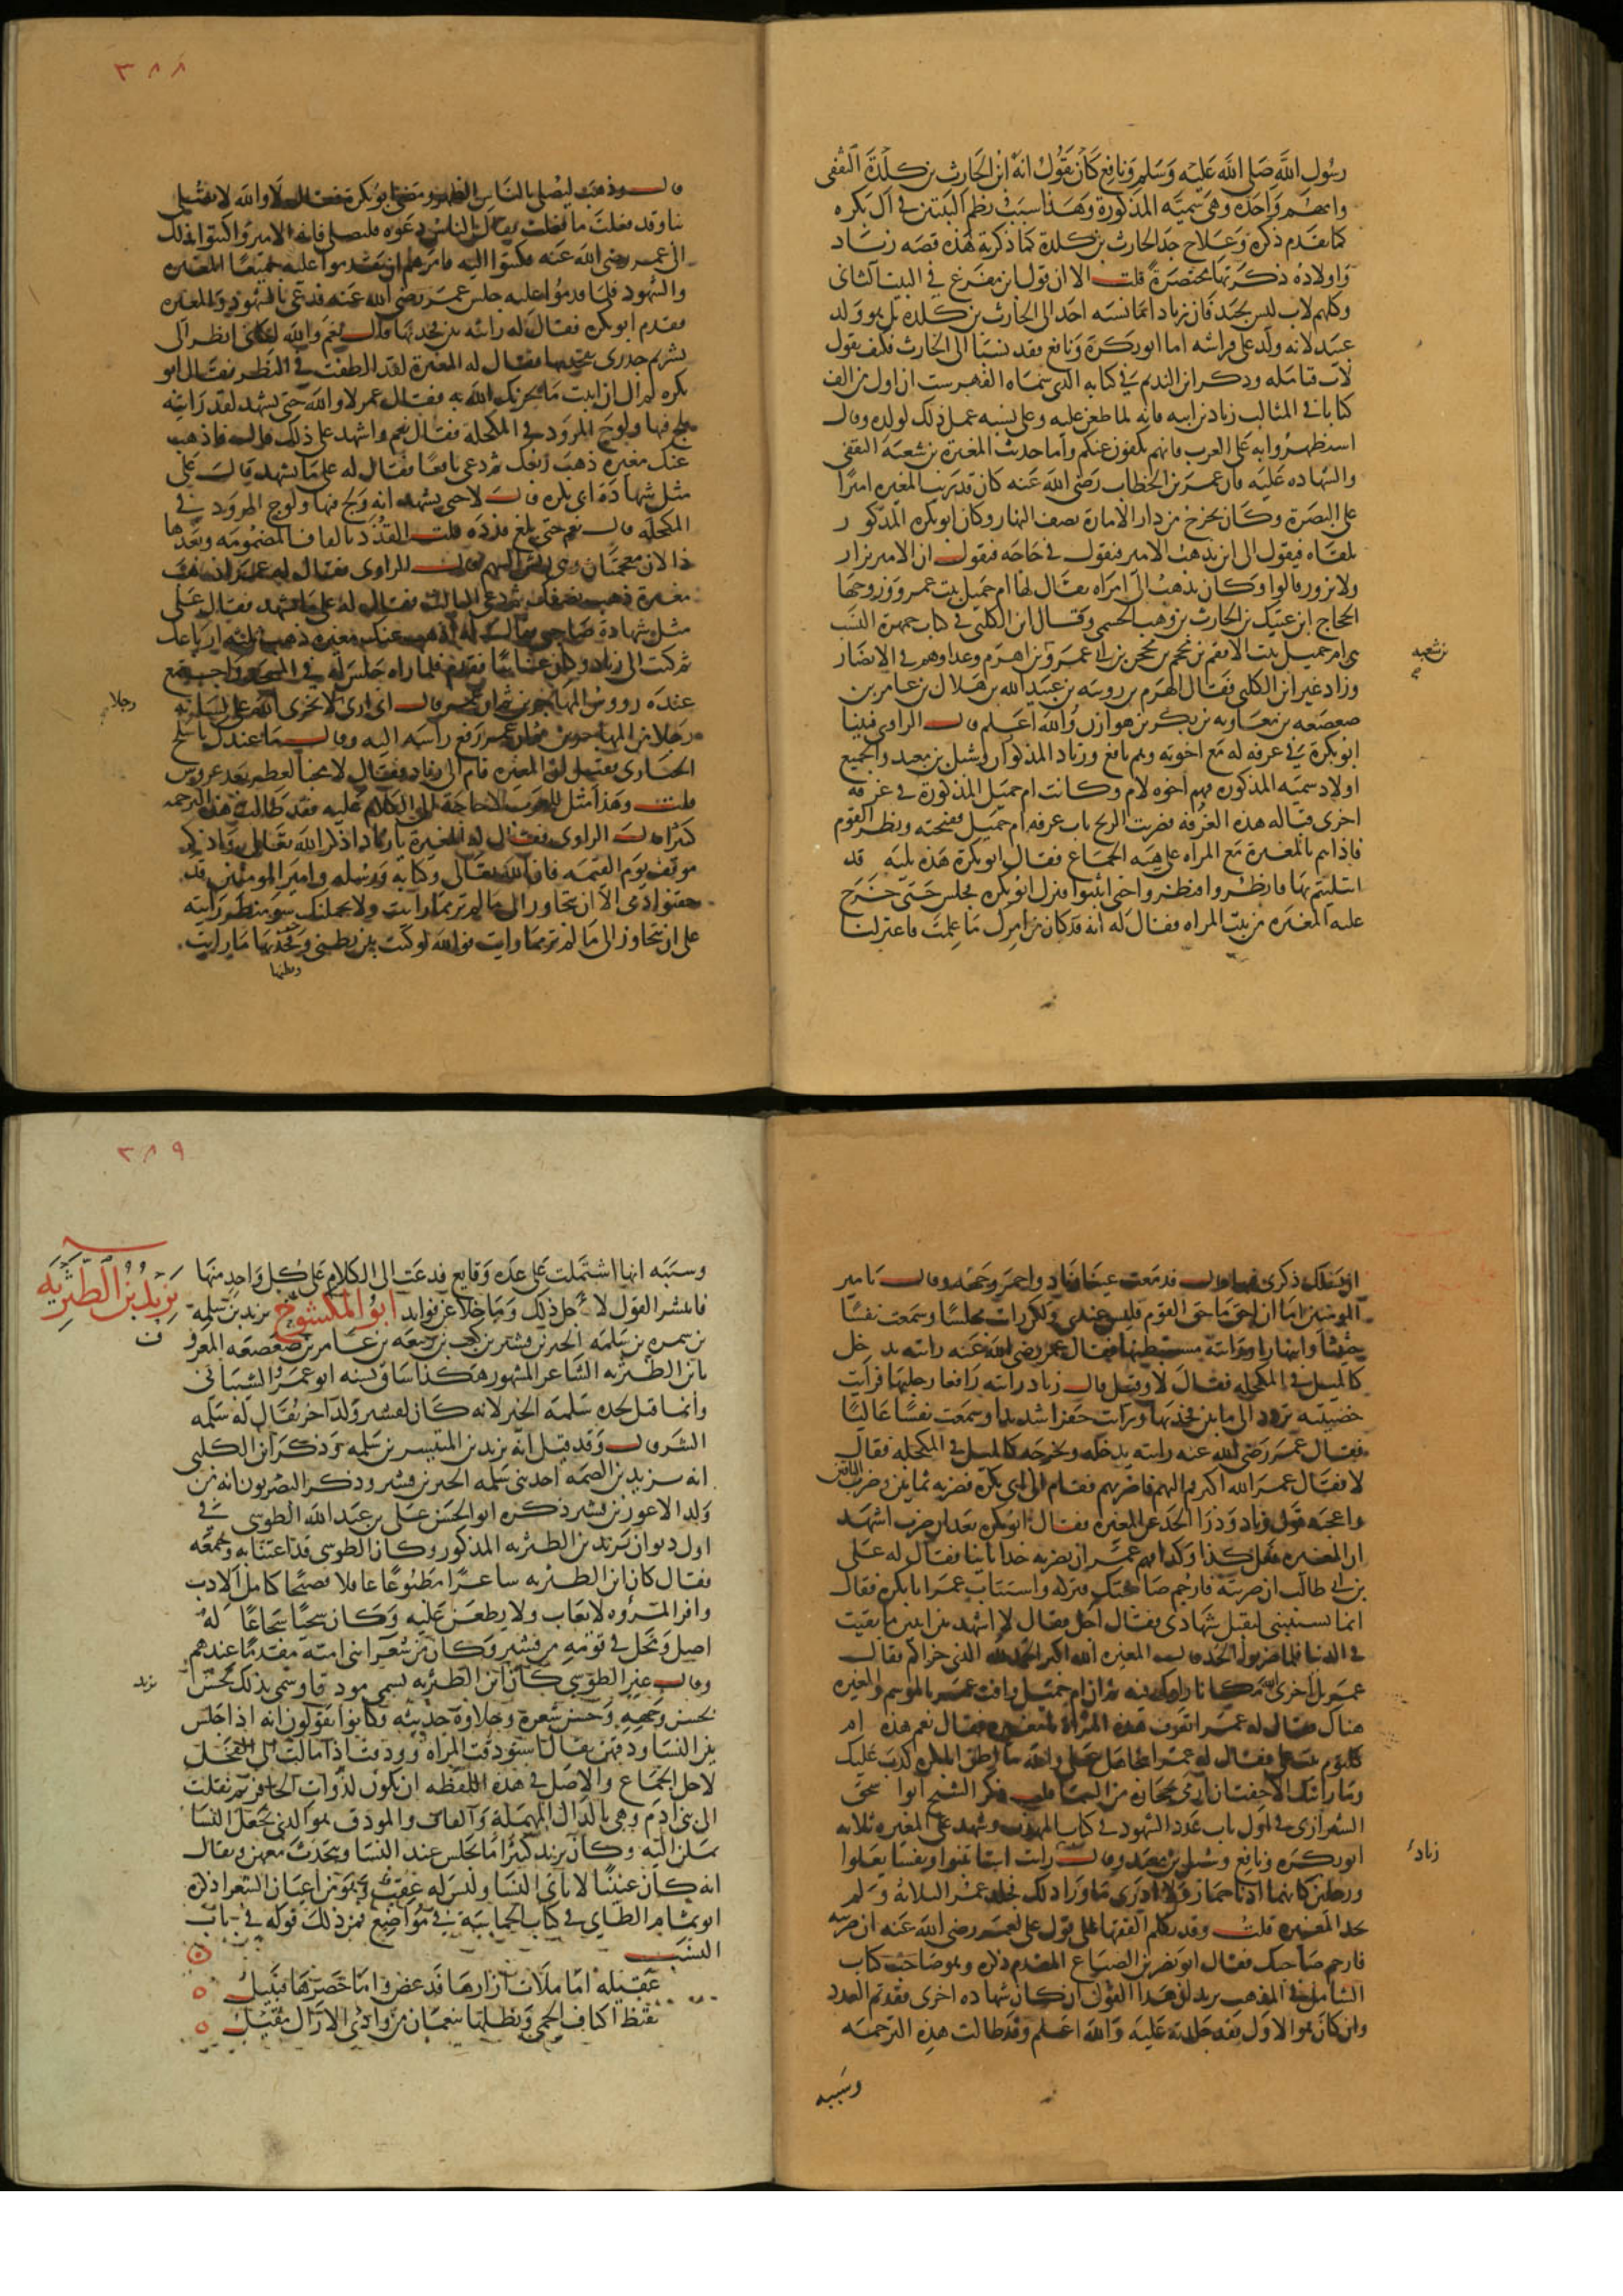 رسول الله صلى الله عليه وسلم ونافع كان يقول انه ابن الحارث بن كلدة الثقفي
وامهم واحده وهي سمية المذكورة وهذا سبب نظم البيتين في آل بكره
كما تقدم ذكره وعلاج جد الحارث بن كلدة كما ذكرته هذه قصه زياد
واولاده ذكرتها مختصرة قلت الا ان قول ابن مفرغ في البيت الثاني
وكلهم لاب ليس بجيد فان زياد اما نسبه احد الى الحارث بن كلده بل هو ولد
عبيد لانه ولد على فراشه اما ابو بكرة ونافع فقد نسبا الى الحارث فكيف يقول
لاب فتامله وذكر ابن النديم في كتابه الذي سماه الفهرست ان اول من الف
كتابا في المثالب زياد بن ابيه فانه لما طعن عليه وعلى نسبه عمل ذلك لولده وقال
استظهروا به على العرب فانهم يكفون عنكم واما حديث المغيرة بن شعبة الثقفي
والشهاده عليه فان عمر بن الخطاب رضي الله عنه كان قد رتب المغيره اميرا
على البصرة وكان يخرج من دار الامارة نصف النهار وكان ابو بكره المذكور
يلقاه فيقول الى اين يذهب الامير فيقول في حاجه فيقول ان الامير يزار
ولا يزور قالوا وكان يذهب الى امراه يقال لها ام جميل بنت عمرو وزوجها
الحجاج ابن عتيك بن الحارث بن وهب الجشمي وقال ابن الكلبي في كتاب جمهرة النسب
هي ام جميل بنت الافقم بن محجن بن ابي عمرو بن اهزم وعدادهم في الانصار
بن شعبه
وزاد غير ابن الكلبي فقال الهزم بن رويبه بن عبد الله بن هلال بن عامر بن
صعصعه بن معاويه بن بكر بن هوازن والله اعلم قال الراوي فبينا
ابو بكرة في غرفه له مع اخوته وهم نافع وزياد المذكوران وشبل بن معبد والجميع
اولاد سميه المذكوره فهم اخوه لام وكانت ام جميل المذكورة في غرفه
اخرى قباله هذه الغرفه فضربت الريح باب غرفه ام جميل ففتحته ونظر القوم
فاذا هم بالمغيرة مع المراه على هيئه الجماع فقال ابو بكرة هذه بليه قد
ابتليتم بها فانظروا فنظروا حتى اثبتوا فنزل ابو بكره فجلس حتى خرج
عليه المغيره من بيت المراه فقال له انه قد كان من امرك ما علمت فاعتزلنا
٣٨٨
قال وذهب ليصلي بالناس الظهر ومضى ابو بكرة فقال لا والله لا تصلي
بنا وقد فعلت ما فعلت فقال الناس دعوه فليصل فانه الامير واكتبوا بذلك
الى عمر رضي الله عنه فكتبوا اليه فامرهم ان يقدموا عليه جميعا المغيره
والشهود فلما قدموا عليه جلس عمر رضي الله عنه فدعى بالشهود والمغيره
فتقدم ابو بكره فقال له رايته بين فخذيها قال نعم والله لكاني انظر الى
تشريم جدري بفخذيها فقال له المغيرة لقد الطفت في النظر فقال ابو
بكره لم آل ان اثبت ما يخزيك الله به فقال عمر لا والله حتى تشهد لقد رايته
يلج فيها ولوج المرود في المكحلة فقال نعم واشهد على ذلك قال فاذهب
عنك مغيره ذهب ربعك ثم دعى نافعا فقال له على ما تشهد قال على
مثل شهادة ابي بكره قال لا حتى تشهد انه ولج فيها ولوج المرود في
المكحله قال نعم حتى بلغ قذذه قلت القذذ بالقاف المضمومه وبعدها
ذالان معجمتان وهي ريش السهم قال الراوي فقال له عمر اذهب
مغيرة ذهب نصفك ثم دعى الثالث فقال له على ما تشهد فقال على
مثل شهادة صاحبي فقال له اذهب عنك مغيره ذهب ثلثه ارباعك
ثم كتب الى زياد وكان غائبا فقدم فلما راه جلس له في المسجد واجتمع
عنده رووس المهاجرين والانصار قال اني ارى لا يخزي الله على لسانه
رجلا
رجلا من المهاجرين ثم ان عمر رفع راسه اليه وقال ما عندك يا سلح
الحبارى فقيل ان المغيره قام الى زياد فقال لا مخبأ لعطر بعد عروس
قلت وهذا مثل للعرب لا حاجة الى الكلام عليه فقد طالت هذه الترجمه
كثيرا قال الراوي فقال له المغيرة يا زياد اذكر الله تعالى واذكر
موقف يوم القيمه فان الله تعالى وكتابه ورسله وامير المومنين قد
حقنوا دمي الا ان تتجاوز الى ما لم تر مما رايت ولا يحملنك سو منظر رايته
على ان تتجاوز الى ما لم تر مما رايت فوالله لو كنت بين بطني وفخذيها ما رايت
وبطنها
ان يسلك ذكري فيها قال فدمعت عينا زياد واحمر وجهه وقال يا امير
المومنين اما ان احق ما حق القوم فليس عندي ولكن رايت مجلسا وسمعت نفسا
حثيثا وانبهارا ورايته مستبطنها فقال عمر رضي الله عنه رايته يدخل
كالميل في المكحله فقال لا وقيل قال زياد رايته رافعا رجليها فرايت
خصيتيه تردد الى ما بين فخذيها ورايت حفزا شديدا وسمعت نفسا عاليا
فقال عمر رضي الله عنه رايته يدخله ويخرجه كالميل في المكحله فقال
لا فقال عمر الله اكبر قم اليهم فاضربهم فقام الى ابي بكره فضربه ثمانين وضرب الباقين
واعجبه قول زياد ودرا الحد عن المغيره فقال ابو بكره بعد ان ضرب اشهد
ان المغيره فعل كذا وكذا فهم عمر ان يضربه حدا ثانيا فقال له علي
بن ابي طالب ان ضربته فارجم صاحبك فتركه واستتاب عمر ابا بكره فقال
انما تستتيبني لتقبل شهادتي فقال اجل فقال لا اشهد بين اثنين ما بقيت
في الدنيا فلما ضربوا الحد قال المغيره الله اكبر الحمد لله الذي اخزاكم فقال
عمر بل اخزى الله مكانا راوك فيه ثم ان ام جميل وافت عمر بالموسم والمغيره
هناك فقال له عمر اتعرف هذه المراه يا مغيره فقال نعم هذه ام
كلثوم بنت علي فقال له عمر اتتجاهل علي والله ما اظن ابا بكره كذب عليك
وما رايتك الا خفت ان ارمى بحجاره من السما قلت ذكر الشيخ ابو اسحق
الشيرازي في اول باب عدد الشهود في كتاب المهذب وشهد على المغيره ثلاثه
ابو بكره ونافع وشبل بن معبد وقال زياد رايت استا تنبو ونفسا يعلو
زياد
ورجلين كانهما اذنا حمار ولا ادري ما ورا ذلك فجلد عمر الثلاثه ولم
يحد المغيره قلت وقد تكلم الفقها على قول علي لعمر رضي الله عنه ان ضربته
فارجم صاحبك فقال ابو نصر بن الصباغ المتقدم ذكره وهو صاحب كتاب
الشامل في المذهب يريد ان هذا القول ان كان شهاده اخرى فقد تم العدد
وان كان هو الاول فقد جلدته عليه والله اعلم وقد طالت هذه الترجمه
وسببه
٣٨٩
وسببه انها اشتملت على عده وقايع فدعت الى الكلام على كل واحد منها
يزيد بن الطثريه
فانتشر القول لاجل ذلك وما خلا عن فوايد ابو المكشوح يزيد بن سلمه
بن سمره بن سلمه الخير بن قشير بن كعب بن ربيعه بن عامر بن صعصعه المعروف
بابن الطثريه الشاعر المشهور هكذا ساق نسبه ابو عمرو الشيباني
وانما قيل لجده سلمة الخير لانه كان لقشير ولد اخر يقال له سلمه
الشر قال وقد قيل انه يزيد بن المنتشر بن سلمه وذكر ابن الكلبي
انه يزيد بن الصمه احد بني سلمه الخير بن قشير وذكر البصريون انه من
ولد الاعور بن قشير ذكره ابو الحسن علي بن عبد الله الطوسي في
اول ديوان يزيد بن الطثريه المذكور وكان الطوسي قد اعتنى به وجمعه
فقال كان ابن الطثريه شاعرا مطبوعا عاقلا فصيحا كامل الادب
وافر المروه لا يعاب ولا يطعن عليه وكان سخيا شجاعا له
اصل ومحل في قومه من قشير وكان من شعرا بني امية مقدما عندهم
وقال غير الطوسي كان ابن الطثريه يسمى مودقا وسمي بذلك لحسن
يزيد
بحسن وجهه وحسن شعره وحلاوة حديثه وكانوا يقولون انه اذا جلس
بين النسا ودقهن يقال استودقت المراه وودقت اذا مالت الى الفحل
لاجل الجماع والاصل في هذه اللفظه ان تكون لذوات الحافر ثم نقلت
الى بني ادم وهي بالدال المهملة والقاف والمودق هو الذي يجعل النسا
يملن اليه وكان يزيد كثيرا ما يجلس عند النسا ويتحدث معهن ويقال
انه كان عنينا لا ياتي النسا وليس له عقب وهو من اعيان الشعرا ذكره
ابو تمام الطاي في كتاب الحماسة في مواضع فمن ذلك قوله في باب
النسيب
عقيليه اما ملاث ازارها فدعص واما خصرها فبتيل
تقيظ اكناف الحمى ويظلها بنعمان من وادي الاراك مقيل